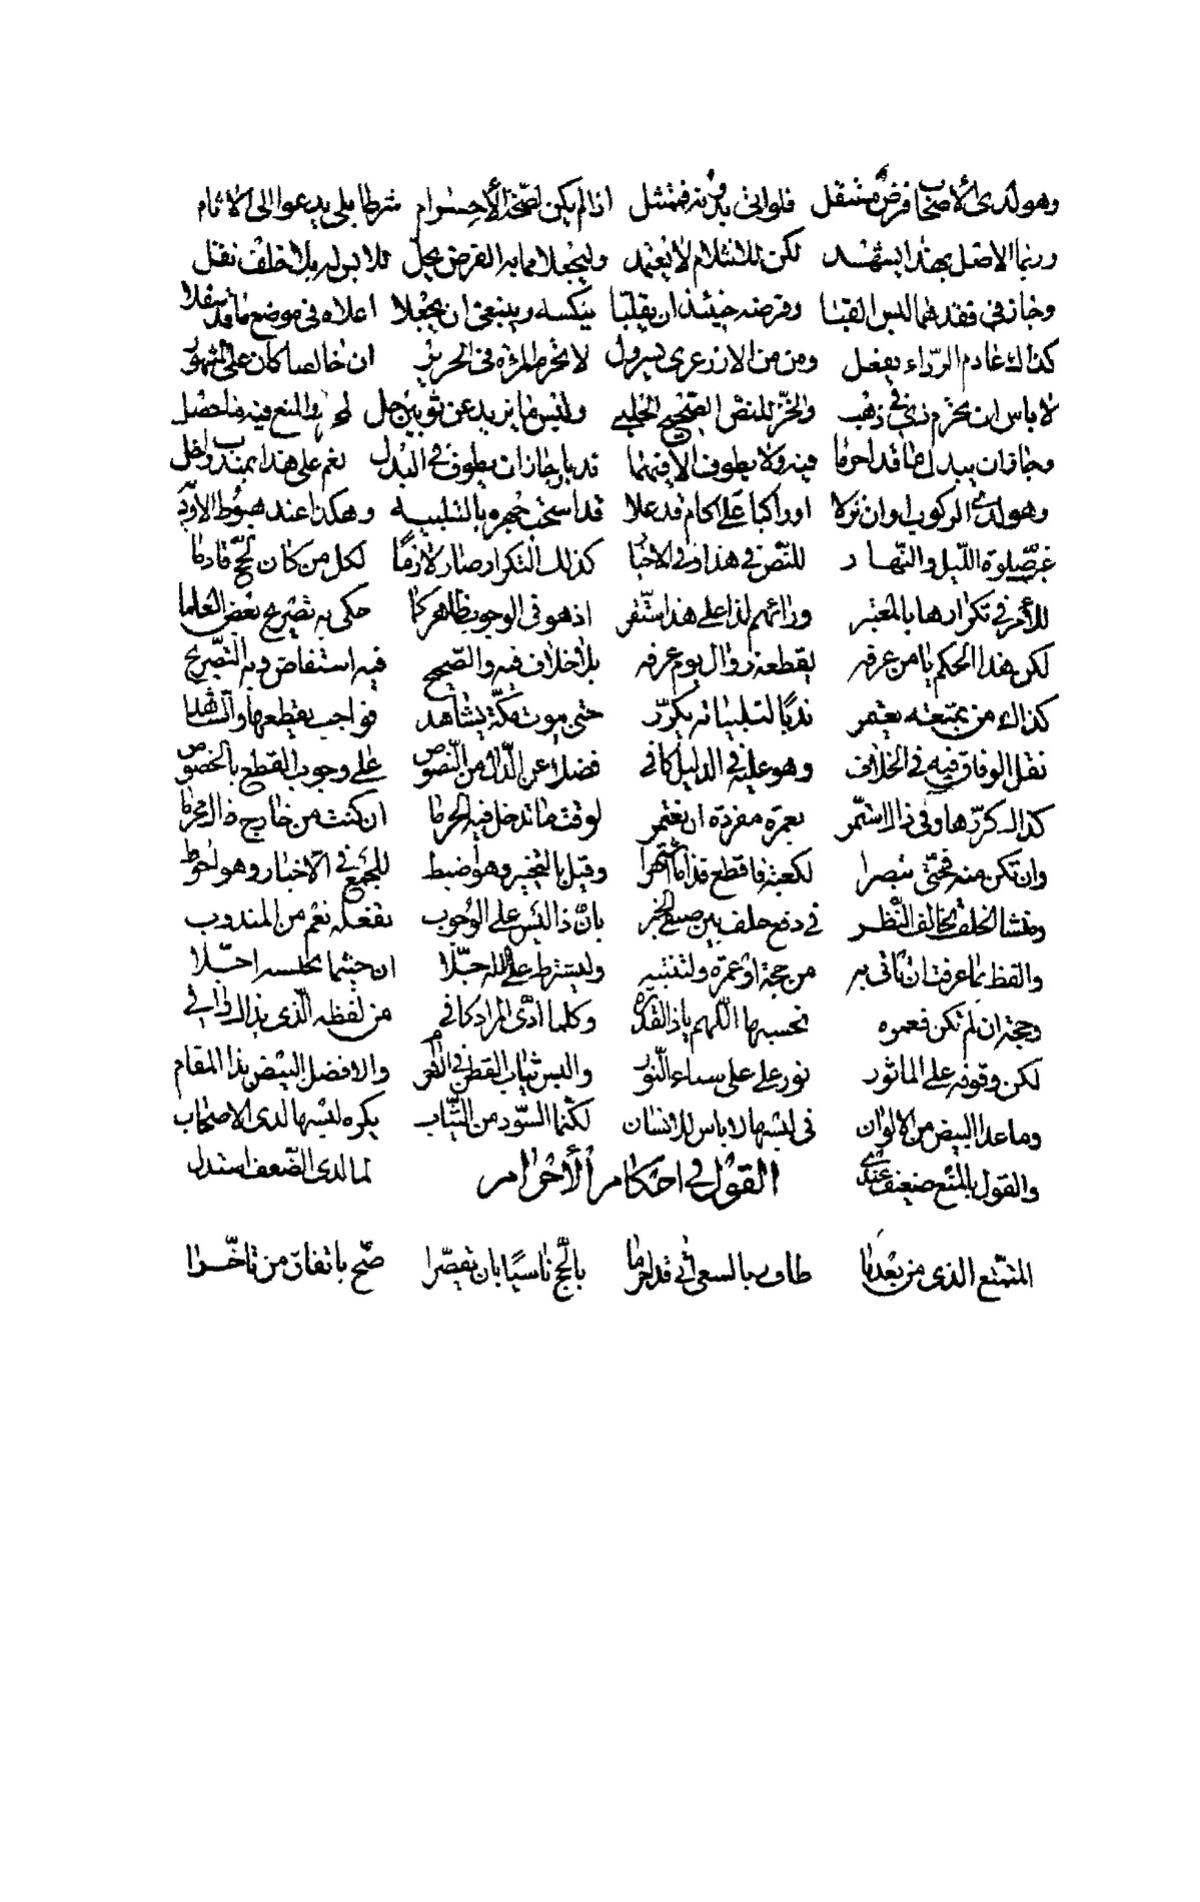 وهو لدى الأصحاب فرض مستقل فلو اتى بدونه فممتثل اذ لم يكن لصحة الأحرام شرطا بلى يدعوا الى الاثام
وربما الاصل بهذا يشهد لكن للاستلام لا يعتمد وليجعلا مما به الفرض يحل للابس له بلا خلف نقل
وجاز في فقدهما لبس القبا وفرضه حينئذ ان يقلبا ينكسه وينبغي ان يجعلا اعلاه في موضع ما قد سفلا
كذاك عادم الرداء يفعل ومن من الازر عرى يسرول لا تحرم المرئة في الحرير ان خالصا كان على المشهور
لا باس ان يحرم في ذهب والخز للنص الصحيح الحلبي ولبس ما يزيد عن ثوبين حل والمنع فيه ما حصل
وجاز ان يبدل ما قد احرما فيه ولا يطوف الا فيهما قد بل جاز ان يطوف في البدل نعم على هذا بمندوب
وهو لدى الركوب او ان نزلا او راكبا على اكام قد علا قد استحب جهره بالتلبيه وهكذا عند هبوط الاوديه
غب صلوة الليل والنهار للنص في هذا وفي الاخبار كذلك التكرار صار لازما لكل من كان لحج قادما
للأمر في تكرارها بالمعتبر ورائهم لذا على هذا استقر اذ هو في الوجوب ظاهر كما حكى به تصريح بعض العلما
لكن هذا الحكم يا من عرفه يقطعه زوال يوم عرفه بلا خلاف فيه والصحيح فيه استفاض وبه التصريح
كذاك من بمتعة يعتمر ندبا لتلبياته يكرر حتى بيوت مكة يشاهد فواجب يقطعها والشاهد
نقل الوفاق فيه في الخلاف وهو عليه في الدليل كافي فضلا عن الدال من النصوص على وجوب القطع بالخصوص
كذاك كررها وفي ذاك استمر بعمرة مفردة ان تعتمر لوقت ما تدخل فيه الحرما ان كنت من خارج ذاك محرما
وان تكن منه فحتى تبصرا لكعبة فاقطع وقيل بالتخيير وهو اضبط للجمع في الاخبار وهو احوط
ومنشا الخلف تخالف النظر في دفع خلف بين الخبر بان ذا ليس على الوجوب تفعله نعم من المندوب
والفظ بما عرفت ان تاتى به من حجة او عمرة ولتنتبه وليشترط على الله جلا ان حيثما تحلسه احلا
وحجة ان لم تكن فعمره تحسبها اللهم يا ذا القدره وكلما ادى المراد كافي من لفظه الذى بذاك وافي
لكن وقوفه على الماثور نور على على سماء النور والبس ثياب القطن في والافضل البيض بذا المقام
وما عدا البيض من الالوان في لبسها لا باس للانسان لكنما السود من الثياب يكره لبسها لدى الاصحاب
والقول بالمنع ضعيف عندى لما لدى الضعف استدل
القول في احكام الأحرام
المتمتع الذى من بعد ما طاف بالسعى اتى قد احرما بالحج ناسيا بان تقصرا صح باتفاق من تاخرا